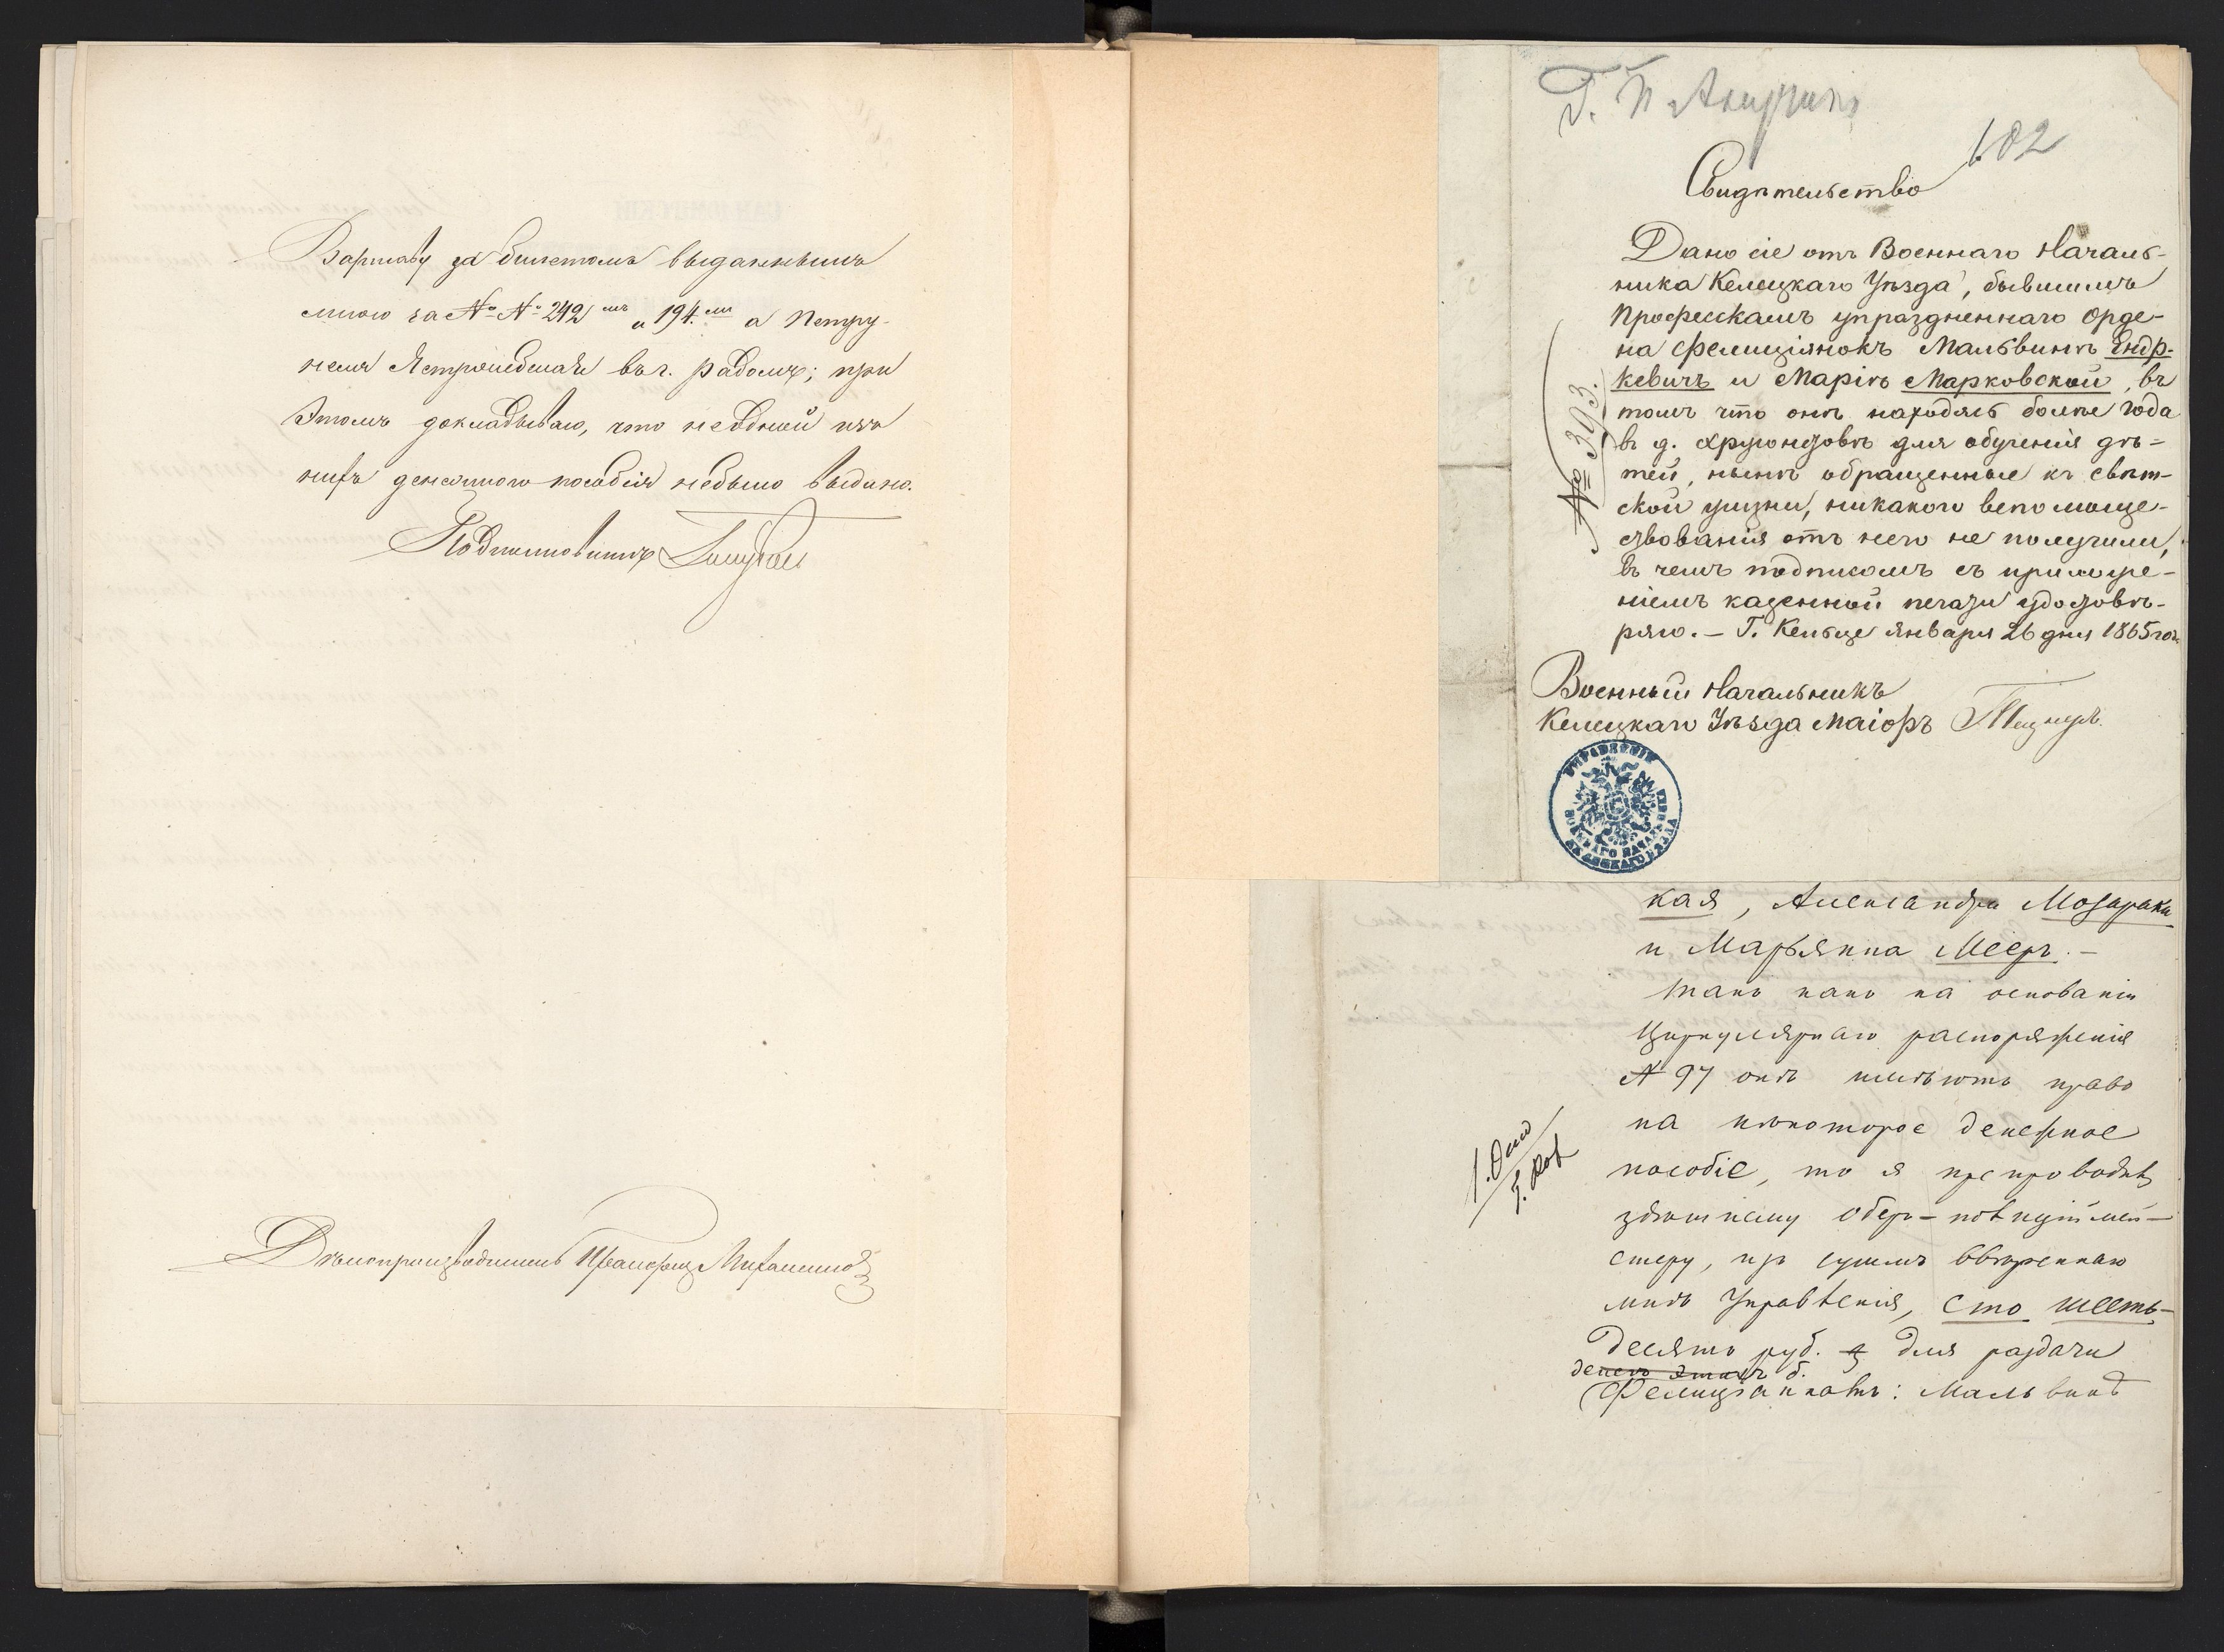 Варшаву за билетомъ выданнымъ
мною за №№ 242мъ и 194.мъ а Петру-
неля въ г. Радомъ; при
этомъ докладываю, что неодной изъ
нихъ денежнаго пособія небыло выдано.
Подполковникъ
Дѣлопроизводитель
Г. П.
102
Свидѣтельство
№ 393.
Дано сіе отъ Военнаго Началь-
ника Келецкаго Уѣзда, бывшимъ
Професскамъ упраздненнаго Орде-
на Фелиціянокъ Мальвинѣ Ендр-
кевичъ и Маріѣ Марковской, въ
томъ что онѣ находясь болѣе года
въ д. для обученія дѣ-
тей, нынѣ обращенные къ свѣт-
ской жизни, никакого вспомоще-
ствованія отъ него не получили,
въ чемъ подписомъ съ приложе-
ніемъ казенной печати удостовѣ-
ряю. – Г. Кельце Января 26 дня 1865 года
Военный Начальникъ
Келецкаго Уѣзда Маіоръ
УПРАВЛЕНІЕ ВОЕННАГО НАЧАЛЬНИКА КЕЛЕЦКАГО УѢЗДА
кая, Александра
и Марьянна Мееръ. –
Такъ какъ на основаніи
Циркулярнаго распоряженія
№ 97 онѣ имѣютъ право
на нѣкоторое денежное
пособіе, то я препроводивъ
здѣшнему Обер-полицій мей-
стеру, изъ суммъ ввѣреннаго
мнѣ Управленія, сто шесть-
десять руб. для раздачи
денегъ этихъ б.
Фелиціанкамъ: Мальвинѣ